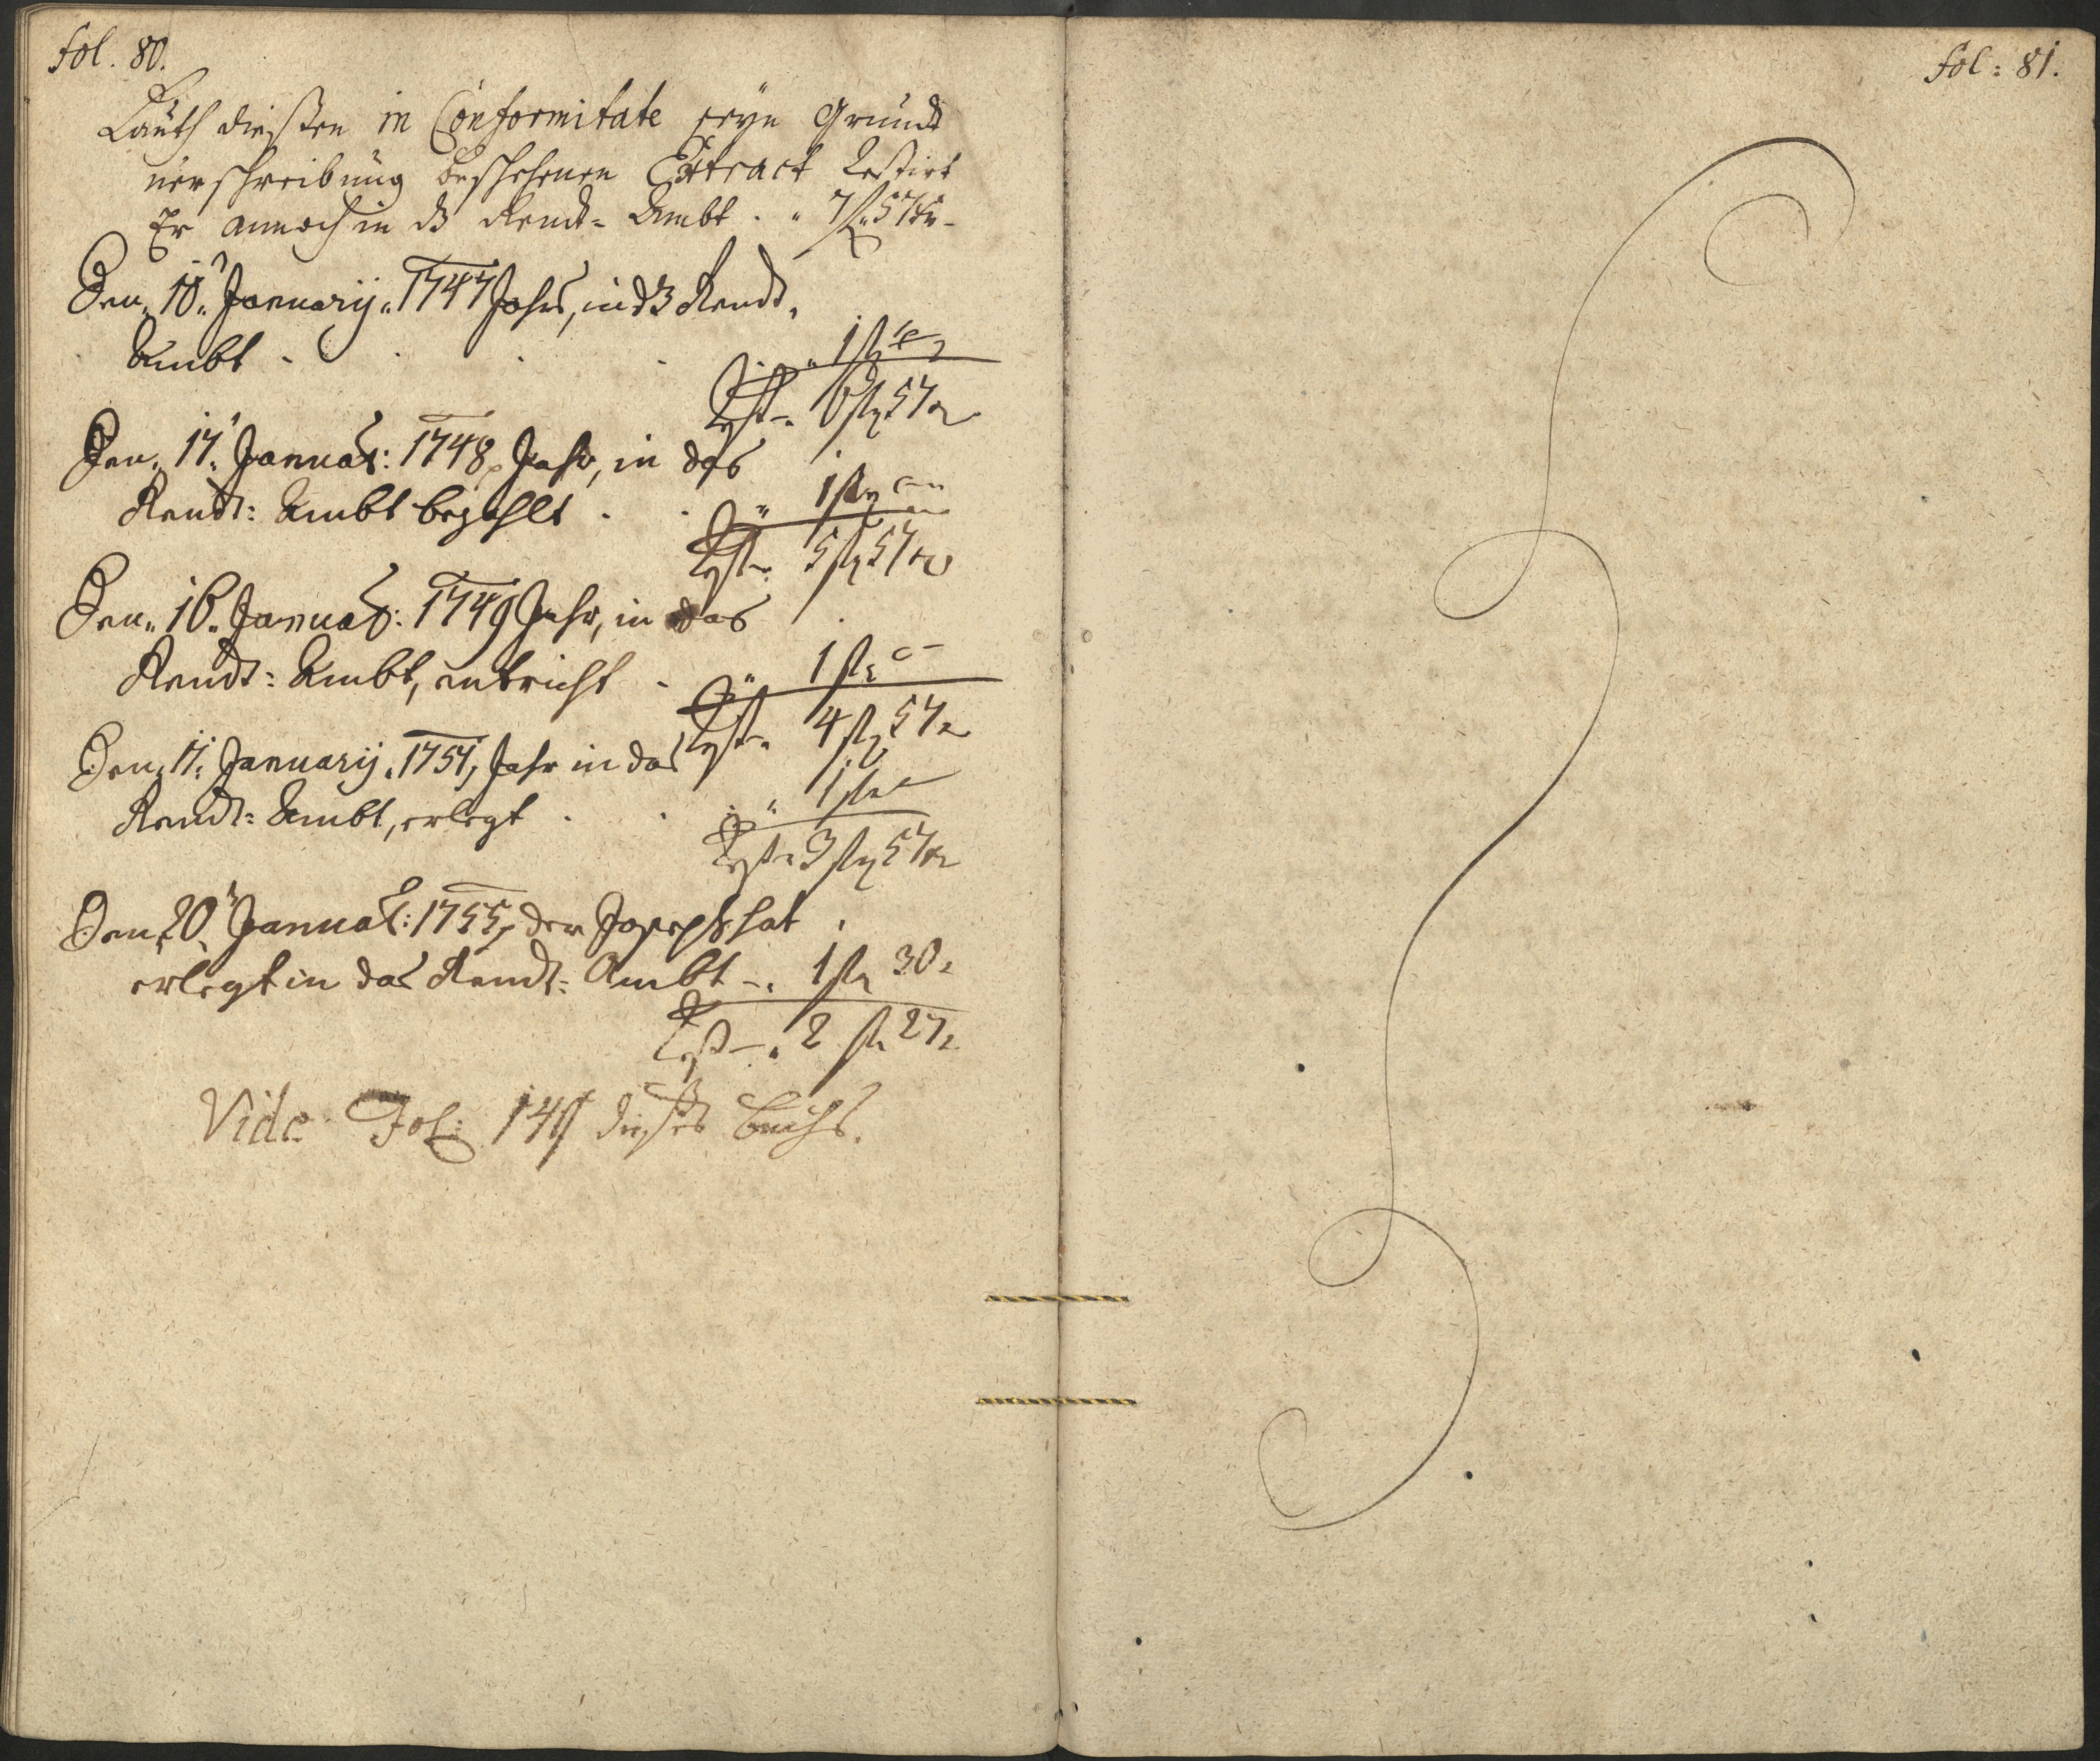 fol. 80.
Lauth dießen in Conformitate seyn Grundt
verschreibung beschehenen Extract Restirt
Er annoch in dz Rendt= Ambt . " 7 fl 57 kr
Den 10. Januarij 1747 Jahr, in dz Rendt
Ambt . . . . 1 fl
Rest 6 fl 57 kr
Den 17. Januar: 1748 Jahr, in das
Rendt: Ambt bezahlt . . " 1 fl
Rest 5 fl 57 kr
Den 16. Januar: 1749 Jahr, in das
Rendt: Ambt, entricht . " 1 fl
Rest 4 fl 57 kr
Den Januarij 1751, Jahr in das
Rendt: Ambt, erlegt . . " 1 fl
Rest 3 fl 57 kr
Den 20. Januar: 1755, der Joseph hat
erlegt in das Rendt: Ambt 1 fl 30
Rest 2 fl 27
Vide Fol: dießes Buchs.
fol: 81.